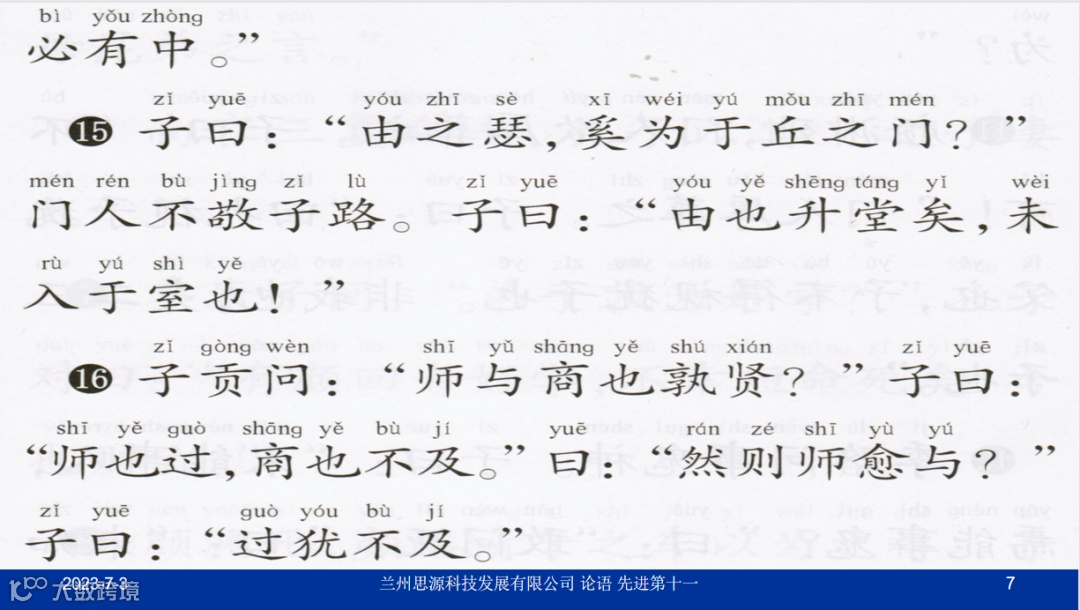 bì yǒu zhòng
必有中。”
zǐ yuē yóu zhī sè xī wéi yú mǒu zhī mén
15 子曰：“由之瑟，奚为于丘之门？”
mén rén bù jìng zǐ lù zǐ yuē yóu yě shēng táng yǐ wèi
门人不敬子路。子曰：“由也升堂矣，未
rù yú shì yě
入于室也！”
zǐ gòng wèn shī yǔ shāng yě shú xián zǐ yuē
16 子贡问：“师与商也孰贤？”子曰：
shī yě guò shāng yě bù jí yuē rán zé shī yù yú
“师也过，商也不及。”曰：“然则师愈与？”
zǐ yuē guò yóu bù jí
子曰：“过犹不及。”
2023-7-3 兰州思源科技发展有限公司 论语 先进第十一 7
大数跨境